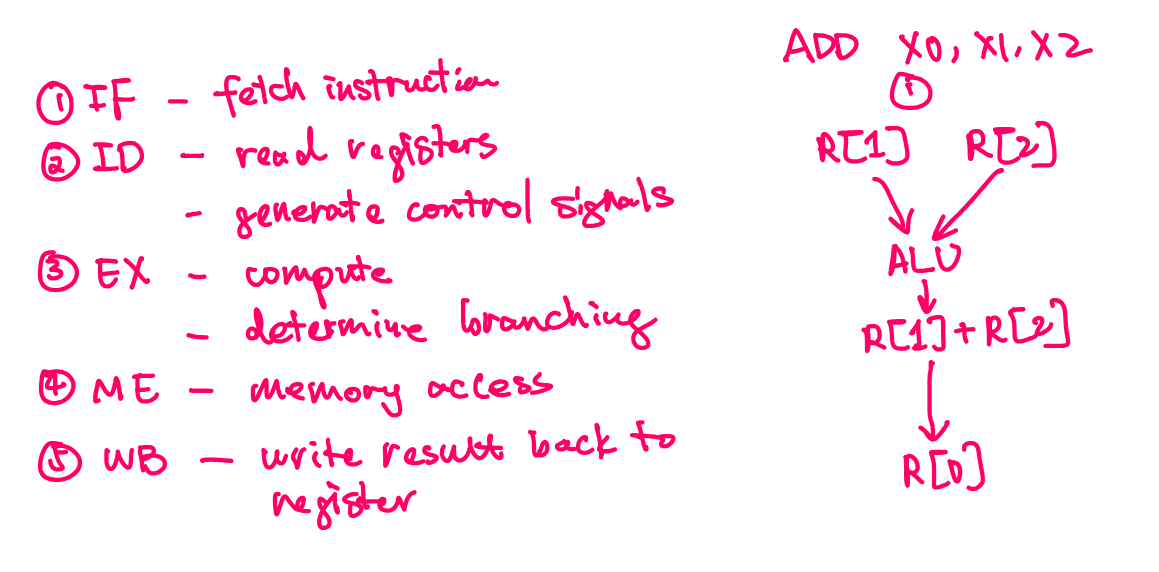 ① IF - fetch instruction
② ID - read registers
- generate control signals
③ EX - compute
- determine branching
④ ME - memory access
⑤ WB - write result back to
register
ADD X0, X1, X2
①
R[1] R[2]
ALU
R[1]+R[2]
R[0]